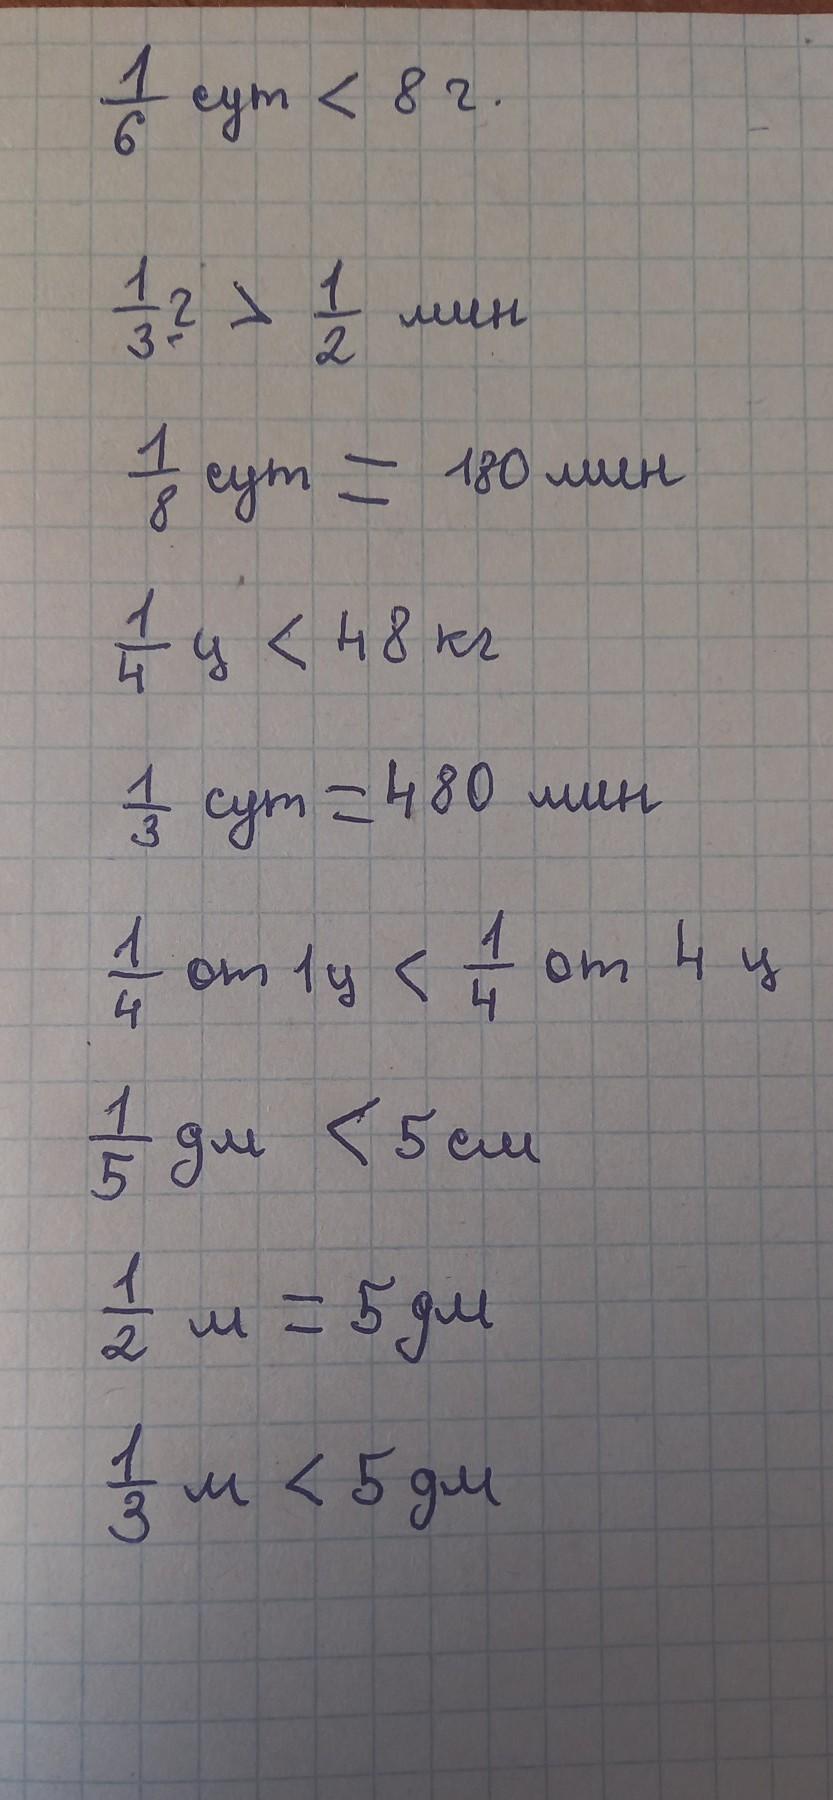 1/6 сут < 8 ч.
1/3 ч > 1/2 мин
1/8 сут = 180 мин
1/4 ц < 48 кг
1/3 сут = 480 мин
1/4 от 1 ц < 1/4 от 4 ц
1/5 дм < 5 см
1/2 м = 5 дм
1/3 м < 5 дм